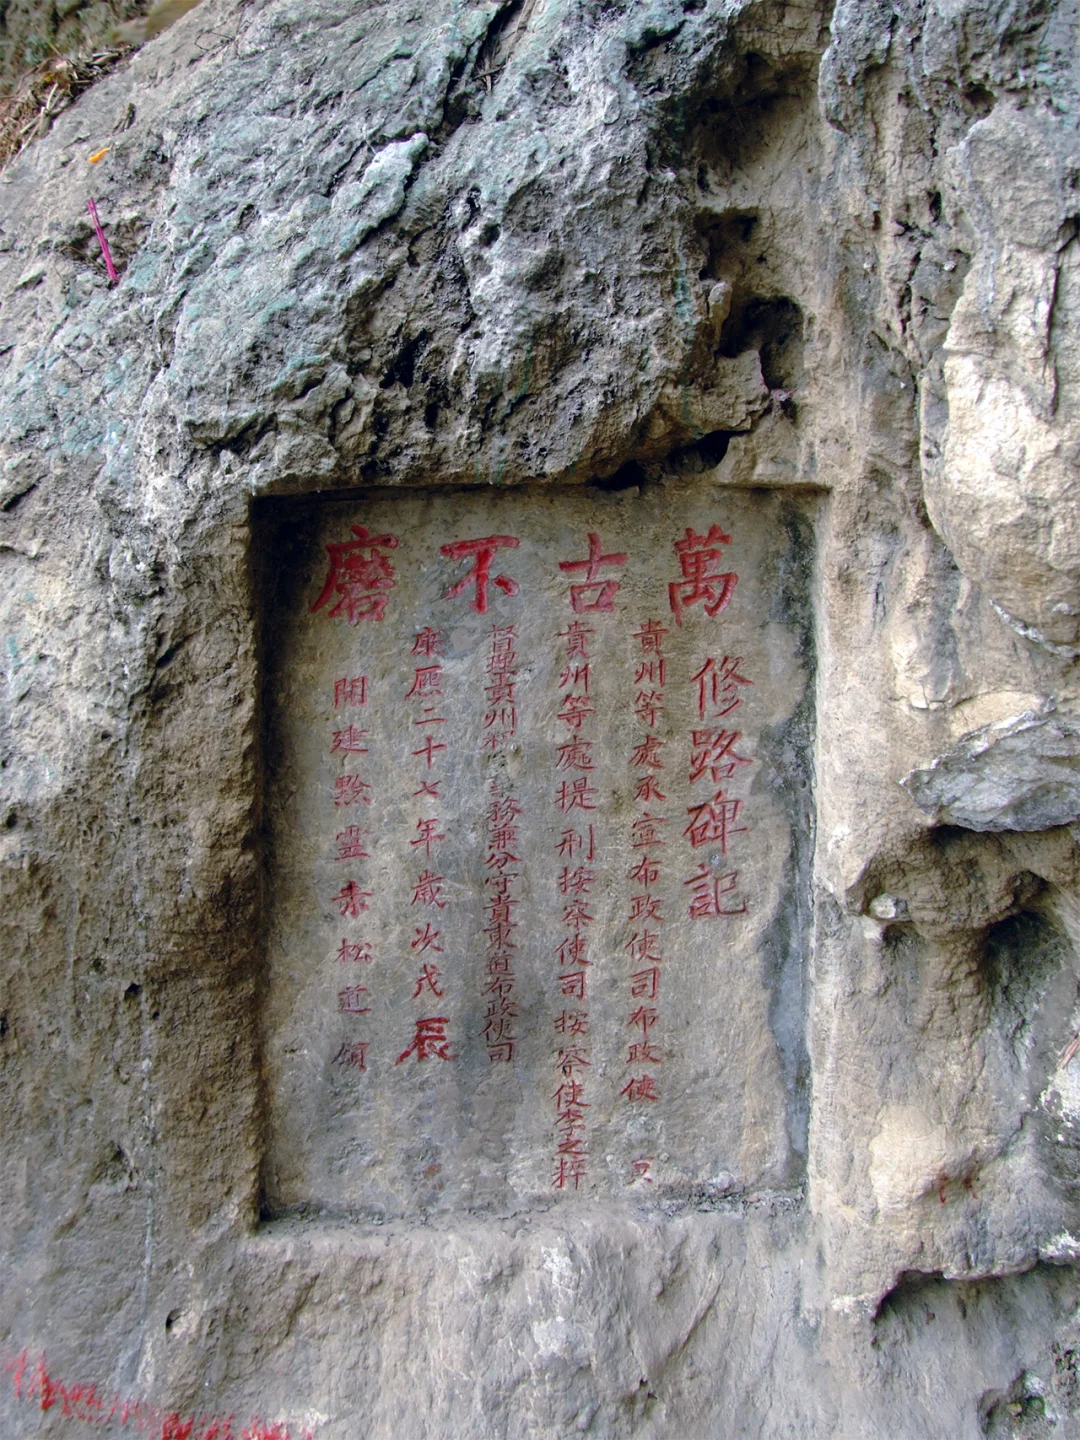 萬古不磨
修路碑記
貴州等處承宣布政使司布政使
貴州等處提刑按察使司按察使李之粹
督理貴州糧 務兼分守貴東道布政使司
康熈二十七年歲次戊辰
開建黔靈赤松道領